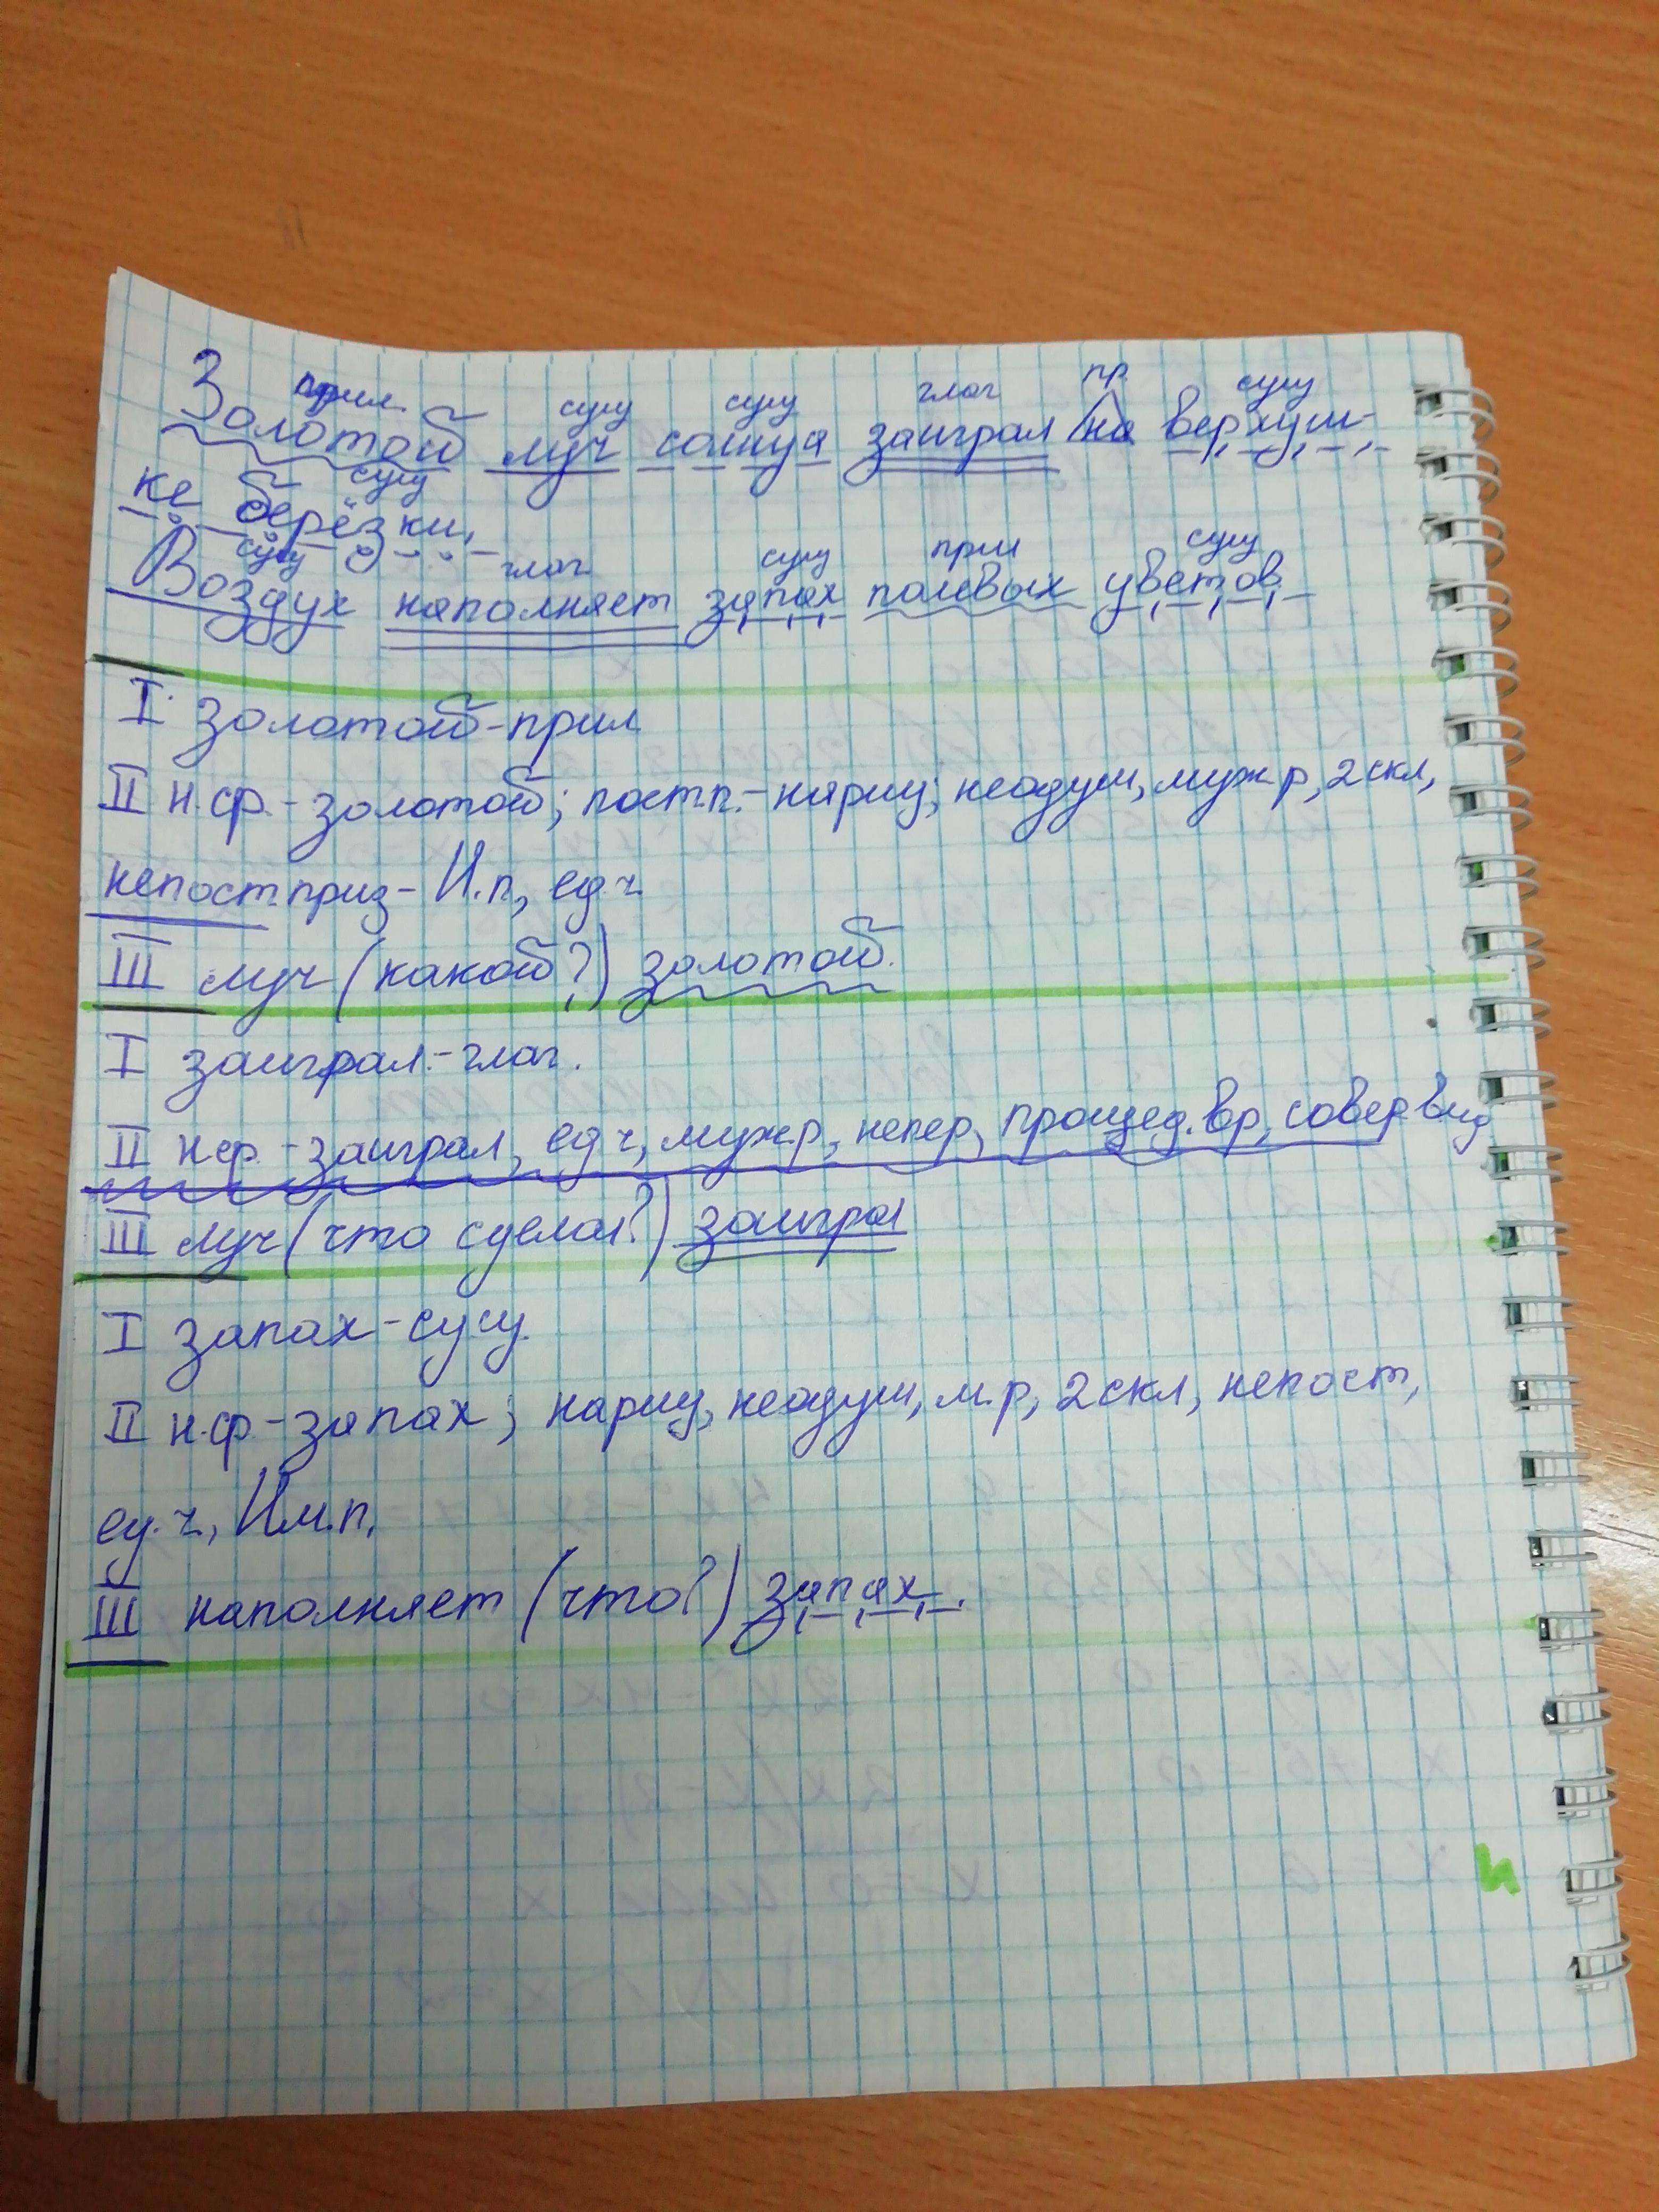 прил. сущ сущ глаг пр. сущ
Золотой луч солнца заиграл на верхуш-
сущ
ке берёзки.
сущ глаг сущ прил сущ
Воздух наполняет запах полевых цветов.
I. золотой-прил
II н.ф.-золотой; пост.п.-нариц; неодуш, муж р, 2 скл,
непост приз- И.п, ед.ч.
III луч (какой?) золотой.
I заиграл.-глаг.
II н.ф.-заиграл, ед ч, муж.р, непер, прошед.вр, совер.вид
III луч (что сделал?) заиграл
I запах-сущ.
II н.ф.-запах; нариц, неодуш, м.р, 2 скл, непост,
ед.ч, Им.п,
III наполняет (что?) запах.